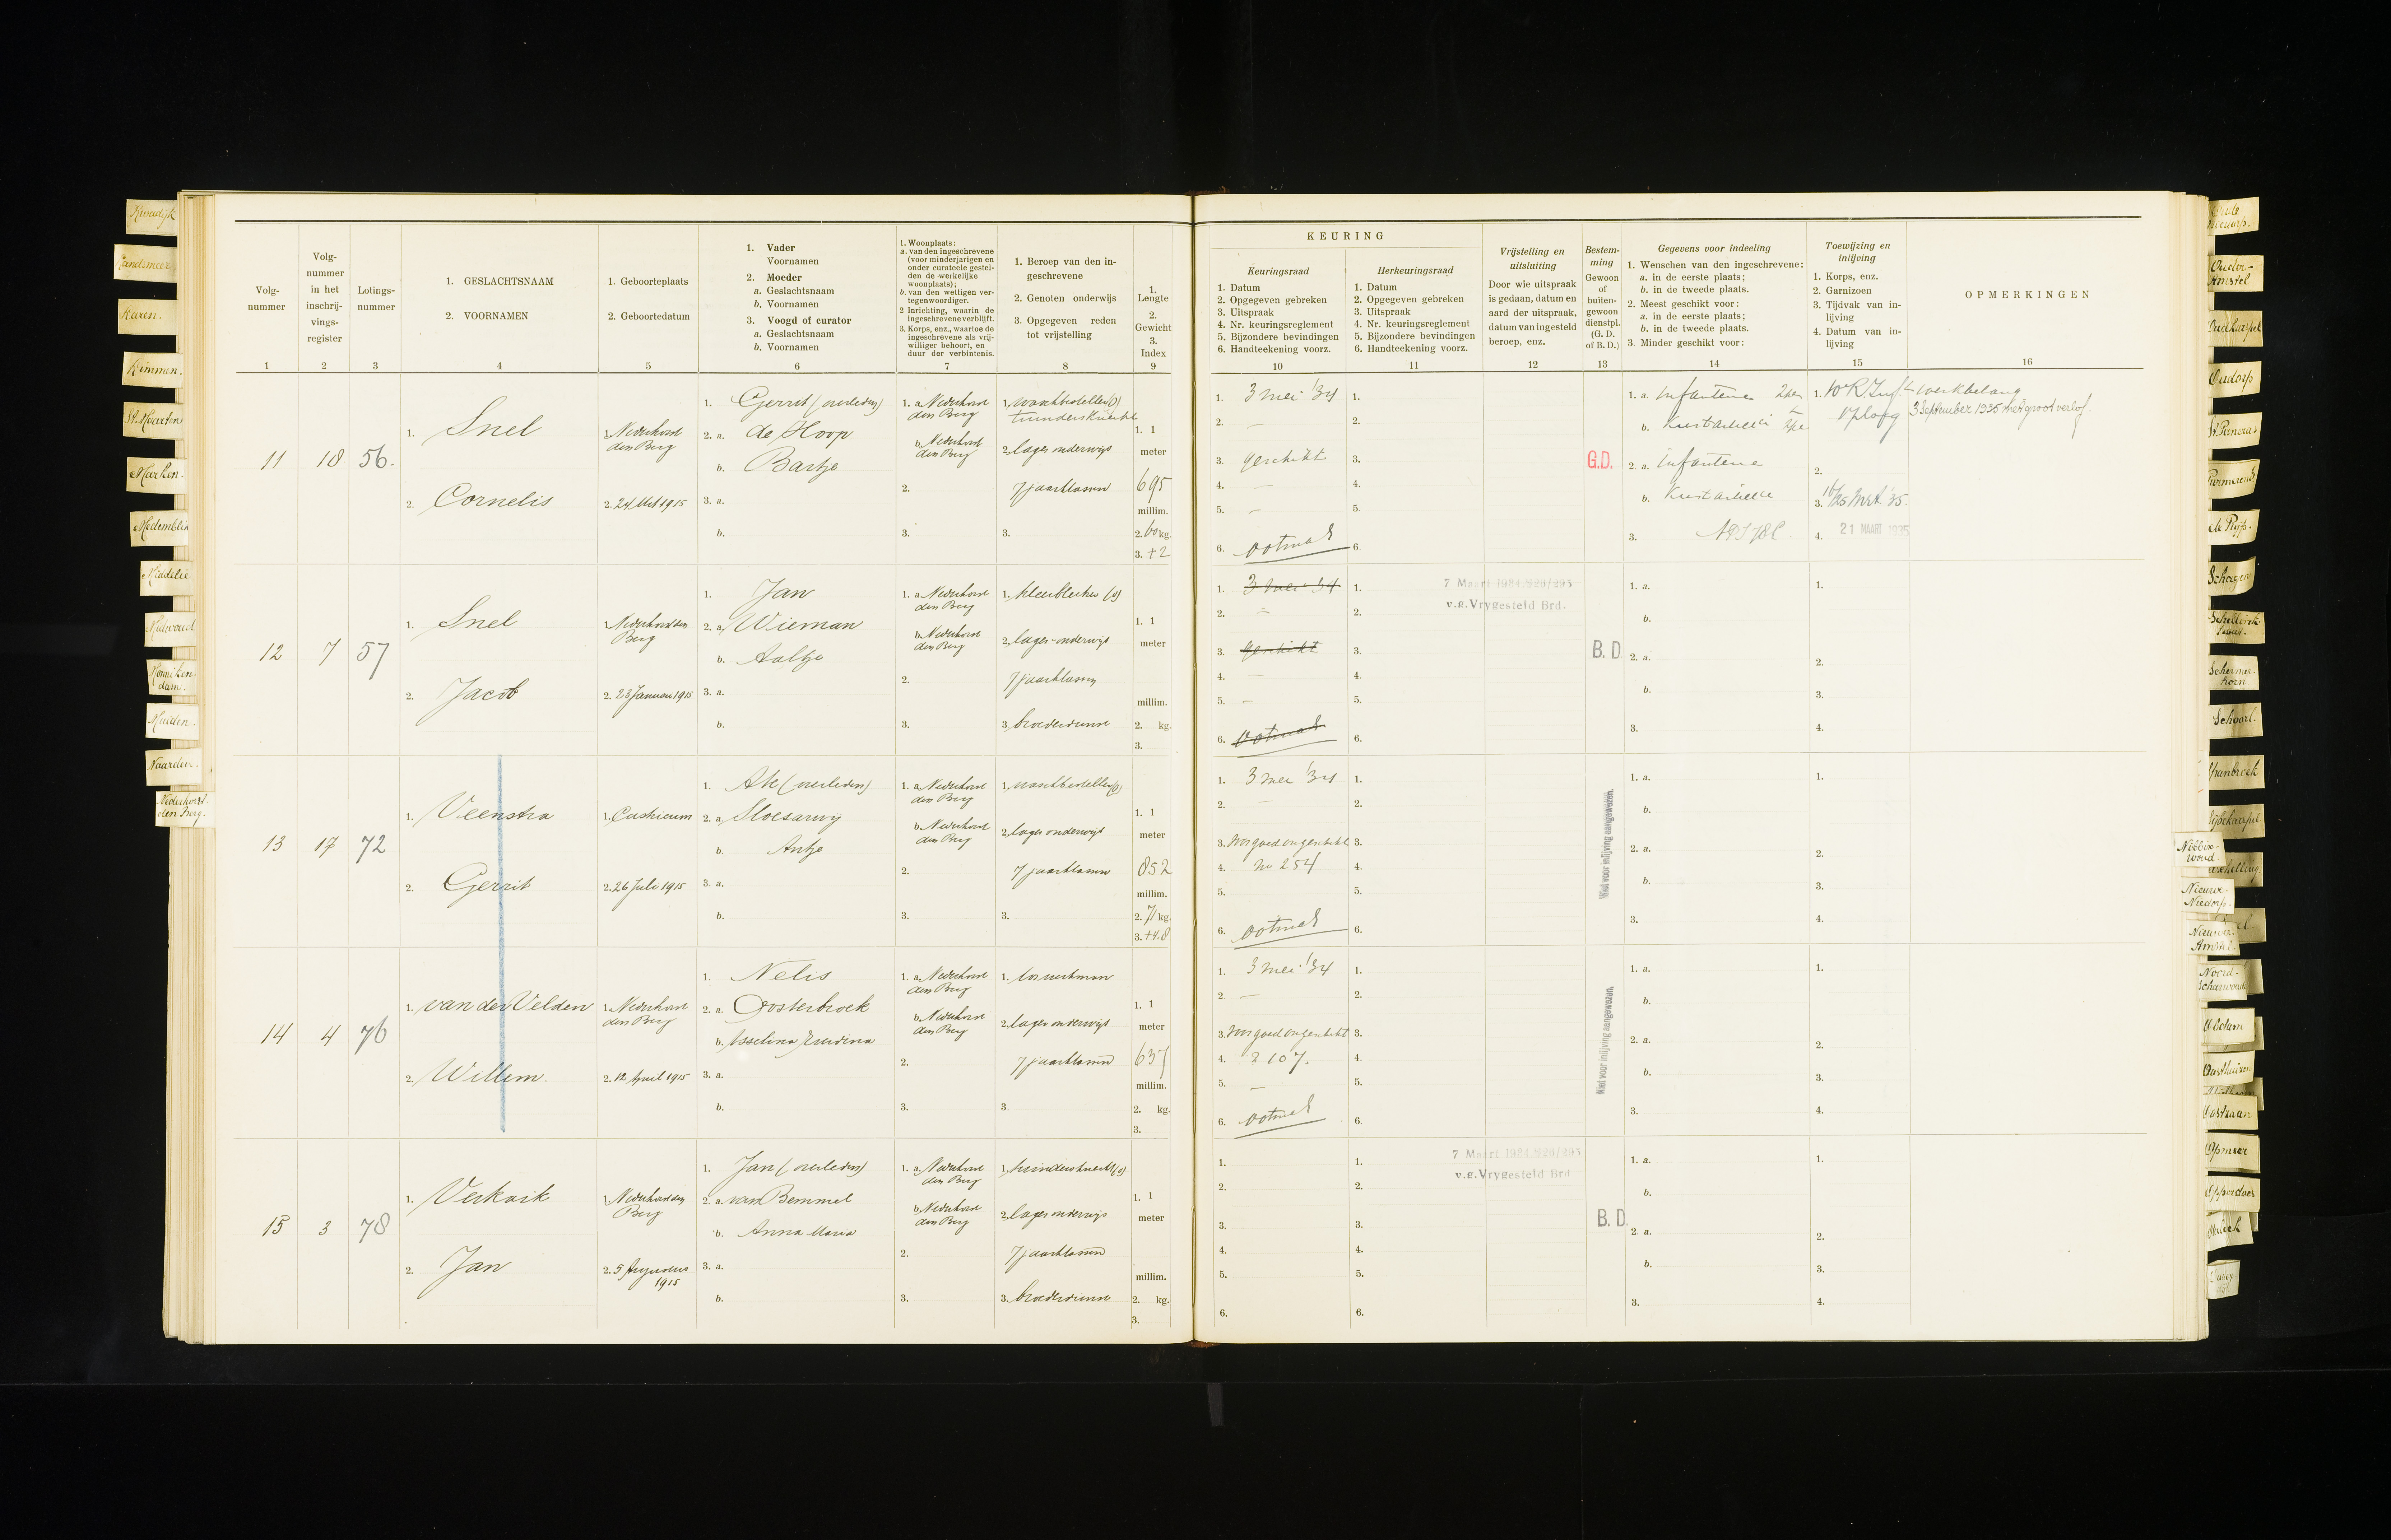 Kwadijk
Landsmeer
Laren.
Limmen.
St. Maarten
Marken.
Medemblik
Middelie
Midwoud
Monniken-
dam.
Muiden.
Naarden.
Nederhorst-
den Berg.
Volg-
nummer
1
Volg-
nummer
in het
inschrij-
vings-
register
2
Lotings-
nummer
3
1. GESLACHTSNAAM
2. VOORNAMEN
4
1. Geboorteplaats
2. Geboortedatum
5
1. Vader
Voornamen
2. Moeder
a. Geslachtsnaam
b. Voornamen
3. Voogd of curator
a. Geslachtsnaam
b. Voornamen
6
1. Woonplaats:
a. van den ingeschrevene
(voor minderjarigen en
onder curateele gestel-
den de werkelijke
woonplaats);
b. van den wettigen ver-
tegenwoordiger.
2 Inrichting, waarin de
ingeschrevene verblijft.
3. Korps, enz., waartoe de
ingeschrevene als vrij-
williger behoort, en
duur der verbintenis.
7
1. Beroep van den in-
geschrevene
2. Genoten onderwijs
3. Opgegeven reden
tot vrijstelling
8
1.
Lengte
2.
Gewicht
3.
Index
9
KEURING
Keuringsraad
1. Datum
2. Opgegeven gebreken
3. Uitspraak
4. Nr. keuringsreglement
5. Bijzondere bevindingen
6. Handteekening voorz.
10
Herkeuringsraad
1. Datum
2. Opgegeven gebreken
3. Uitspraak
4. Nr. keuringsreglement
5. Bijzondere bevindingen
6. Handteekening voorz.
11
Vrijstelling en
uitsluiting
Door wie uitspraak
is gedaan, datum en
aard der uitspraak,
datum van ingesteld
beroep, enz.
12
Bestem-
ming
Gewoon
of
buiten-
gewoon
dienstpl.
(G. D.
of B. D.)
13
Gegevens voor indeeling
1. Wenschen van den ingeschrevene:
a. in de eerste plaats;
b. in de tweede plaats.
2. Meest geschikt voor:
a. in de eerste plaats;
b. in de tweede plaats.
3. Minder geschikt voor:
14
Toewijzing en
inlijving
1. Korps, enz.
2. Garnizoen
3. Tijdvak van in-
lijving
4. Datum van in-
lijving
15
OPMERKINGEN
16
11
18
56.
1. Snel
2. Cornelis
1. Nederhorst
den Berg
2. 24 Oct 1915
1. Gerrit (overleden)
2. a. de Hoop
b. Bartje
3. a.
b.
1. a. Nederhorst
den Berg
b. Nederhorst
den Berg
2.
3.
1. waschbesteller (v)
tuindersknecht
2. lager onderwijs
7 jaarklassen
3.
1. 1
meter
695
millim.
2. 60 kg.
3. +2
1. 3 mei '34
2. –
3. geschikt
4. –
5. –
6.
1.
2.
3.
4.
5.
6.
G.D.
1. a. Infanterie
b. Kustartillerie
2. a. Infanterie
b. Kustartillerie
3.
1. 10 R. Inf.
2.
3. 16/25 Mrt '35.
4. 21 MAART 1935
werkbelang
3 September 1935 met groot verlof.
12
7
57
1. Snel
2. Jacob
1. Nederhorst den
Berg
2. 23 Januari 1915
1. Jan
2. a. Wieman
b. Aaltje
3. a.
b.
1. a. Nederhorst
den Berg
b. Nederhorst
den Berg
2.
3.
1. kleerbleeker (v)
2. lager onderwijs
7 jaarklassen
3. broederdienst
1. 1
meter
millim.
2. kg.
3.
1. 3 mei 34
2. –
3. geschikt
4. –
5. –
6.
1.
2.
3.
4.
5.
6.
7 Maart 1934
v.g. Vrygesteld Brd.
B. D
1. a.
b.
2. a.
b.
3.
1.
2.
3.
4.
13
17
72
1. Veenstra
2. Gerrit
1. Castricum
2. 26 Juli 1915
1. Ate (overleden)
2. a.
b. Antje
3. a.
b.
1. a. Nederhorst
den Berg
b. Nederhorst
den Berg
2.
3.
1. waschbesteller (v)
2. lager onderwijs
7 jaarklassen
3.
1. 1
meter
852
millim.
2. 71 kg.
3. +4.8
1. 3 mei '34
2. –
3. voorgoed ongeschikt
4. no 254
5.
6.
1.
2.
3.
4.
5.
6.
Niet voor inlijving aangewezen.
1. a.
b.
2. a.
b.
3.
1.
2.
3.
4.
14
4
76
1. van der Velden
2. Willem.
1. Nederhorst
den Berg
2. 12 April 1915
1. Nelis
2. a. Oosterbroek
b.
3. a.
b.
1. a. Nederhorst
den Berg
b. Nederhorst
den Berg
2.
3.
1. los werkman
2. lager onderwijs
7 jaarklassen
3.
1. 1
meter
637
millim.
2. kg.
3.
1. 3 mei '34
2. –
3. voorgoed ongeschikt
4. 2 107.
5. –
6.
1.
2.
3.
4.
5.
6.
Niet voor inlijving aangewezen.
1. a.
b.
2. a.
b.
3.
1.
2.
3.
4.
15
3
78
1. Verkaik
2. Jan
1. Nederhorst den
Berg
2. 5 Augustus
1915
1. Jan (overleden)
2. a. van Bemmel
b. Anna Maria
3. a.
b.
1. a. Nederhorst
den Berg
b. Nederhorst
den Berg
2.
3.
1. tuindersknecht (v)
2. lager onderwijs
7 jaarklassen
3. broederdienst
1. 1
meter
millim.
2. kg.
3.
1.
2.
3.
4.
5.
6.
1.
2.
3.
4.
5.
6.
7 Maart 1934
v.g. Vrygesteld Brd
B. D.
1. a.
b.
2. a.
b.
3.
1.
2.
3.
4.
Ouder-
Amstel
Oudkarspel
Oudorp
Purmerend
de Rijp.
Schagen
Schellink-
Schermer-
horn
Schoorl.
Spanbroek
Nibbix-
woud.
Nieuwe-
Niedorp.
Nieuwer-
Amstel.
Noord-
Scharwoude
Obdam
Oosthuizen
Oostzaan
Opmeer
Opperdoes